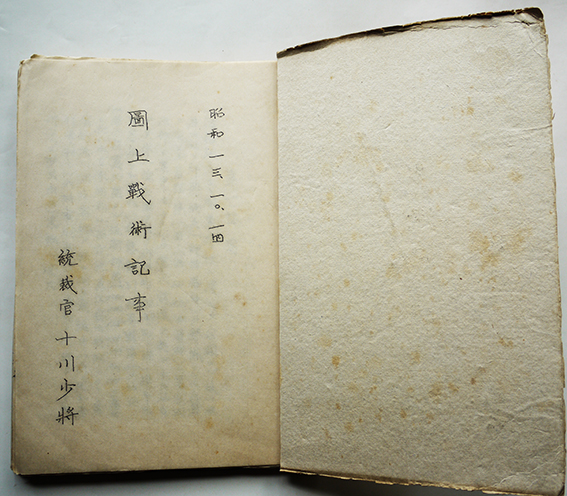 昭和一三、一〇、一四
圖上戰術記事
統裁官 十川少將